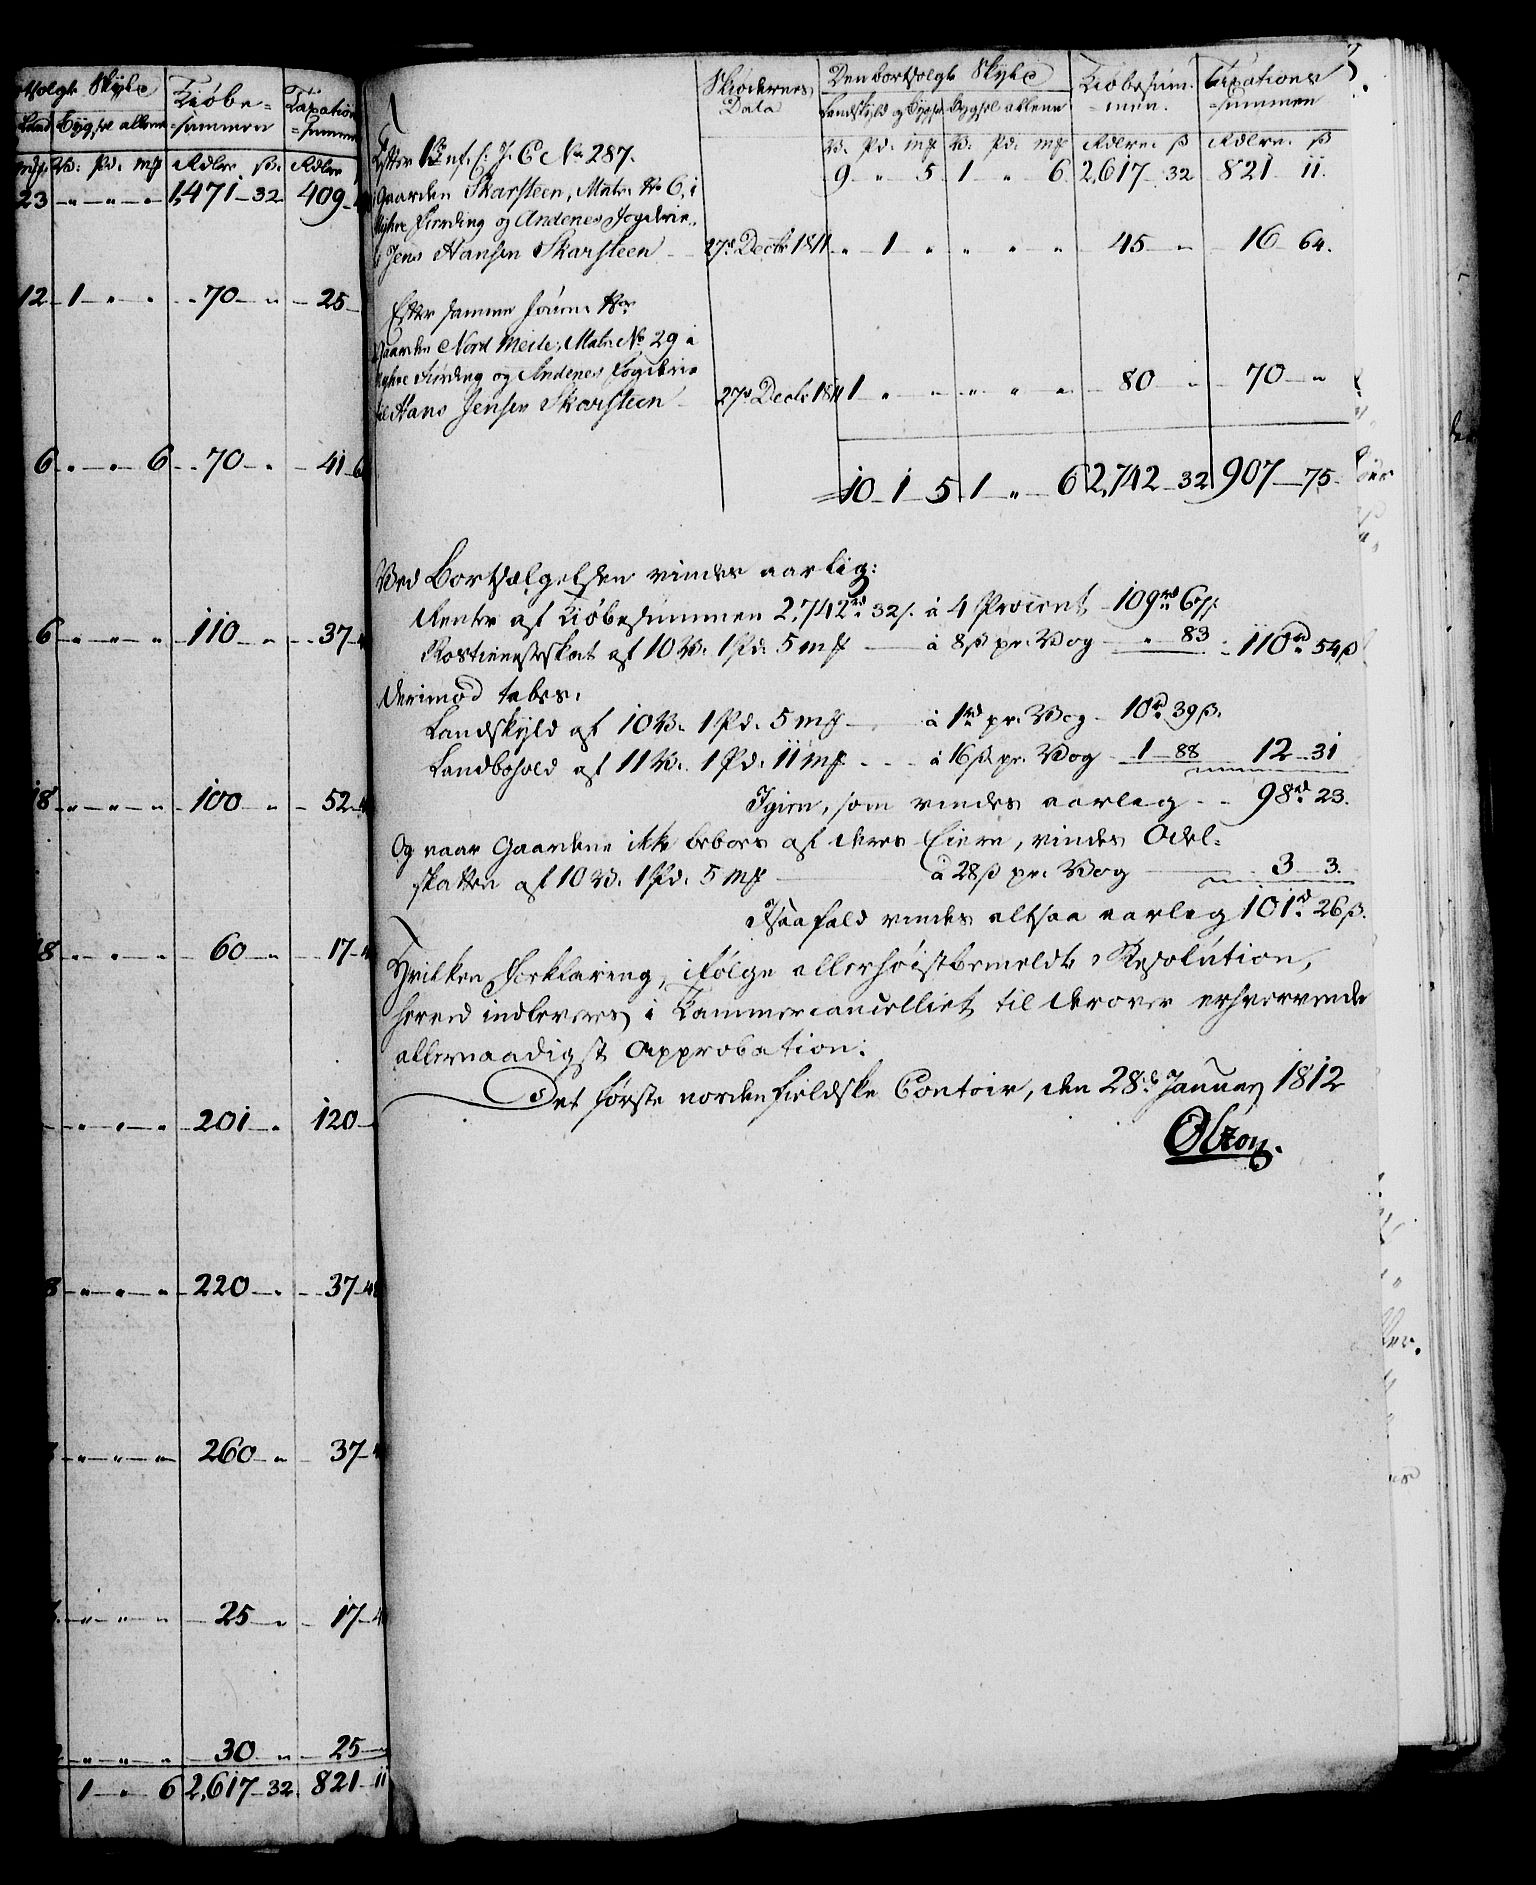 rtsolgte Skyld
Kiöbe=
Taxation
Land
Bygsel allene
=summen
=summen
mg V: Pd: mg Rdlr. ß. Rdlr
23 " " " 1,471 32 409
12 1 " " 70 " 25
6 " " 6 70 " 41
6 " " " 110 " 37
18 " " " 100 " 52
18 " " " 60 " 17
" " " 201 " 120
8 " " " 220 " 37
" " " 260 " 37
" " " 25 " 17
" " " 30 " 25
1 " 6 2,617 32 821 11
Skiödernes
Data
Den bortsolgte Skyld
Landskyld og Bygsel
Bygsel allene
Kiöbesum-
men.
Taxations
=summen
V. Pd. mg V. Pd. mg Rdlr. ß Rdlr. ß
9 " 5 1 " 6 2,617 32 821 11.
Efter No 287.
Gaarden Skarsteen, Matr. No 6, i
Fierding og Andenes Fogderie,
Jens Hansen Skarsteen 27de Decbr 1811 " 1 " " " " 45 " 16 64.
Efter samme
Gaarden Nord Meile, Matr. No 29 i
Fierding og Andenes Fogderie
til Hans Jensen Skarsteen 27de Decbr 1811 1 " " " " " 80 " 70 "
10 1 5 1 " 6 2,742 32 907 75.
Ved Bortsælgelsen vindes aarlig:
Rente af Kiöbesummen 2,742 rd 32 ß. à 4 Procent 109 rd 67 ß.
Rostienesteskat af 10 V. 1 Pd. 5 mg à 8 ß pr. Vog " 83 110 rd 54 ß
Derimod tabes:
Landskyld af 10 V. 1 Pd. 5 mg à 1 rd pr. Vog 10 rd 39 ß.
Landbohold af 11 V. 1 Pd. 11 mg à 16 ß pr. Vog 1 88 12 31
Igien, som vindes aarlig 98 rd 23.
Og naar Gaardene ikke beboes af deres Eiere, vindes Odel-
skatten af 10 V. 1 Pd. 5 mg à 28 ß pr. Vog 3 3.
I saa fald vindes altsaa aarlig 101 rd 26 ß.
Hvilken Forklaring, ifölge allerhöistbemeldte Resolution,
herved indleveres i Kammercancelliet til derover erhvervende
allernaadigst Approbation.
Det förste nordenfieldske Contoir, den 28de Januar 1812